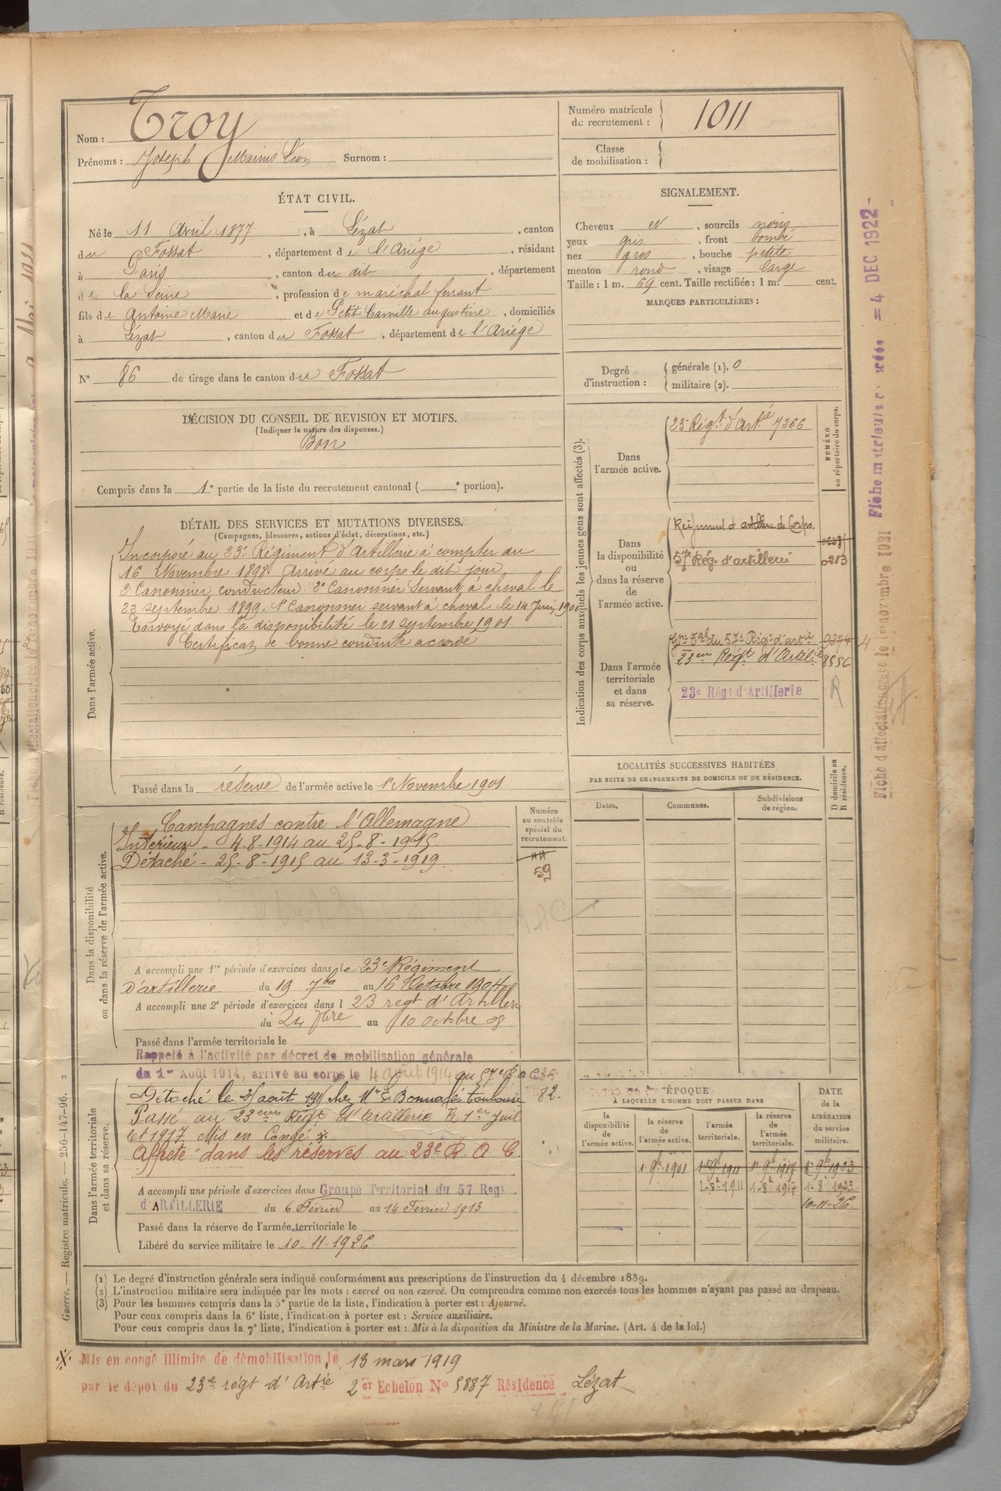 Nom : Troy
Prénoms : Joseph Marius Léon Surnom :
Numéro matricule
du recrutement : 1011
Classe
de mobilisation :
ÉTAT CIVIL.
Né le 11 Avril 1877, à Lézat, canton
du Fossat, département de l'Ariège, résidant
à Paris, canton du dit, département
de la Seine, profession de maréchal ferrant
fils de Antoine Marie et de Petit Camille Augustine, domiciliés
à Lézat, canton du Fossat, département de l'Ariège
N° 86 de tirage dans le canton du Fossat
SIGNALEMENT.
Cheveux et, sourcils noirs
yeux gris, front bombé
nez gros, bouche petite
menton rond, visage large
Taille : 1 m. 69 cent. Taille rectifiée : 1 m. cent.
MARQUES PARTICULIÈRES :
Degré
d'instruction :
générale (1). 0
militaire (2).
DÉCISION DU CONSEIL DE REVISION ET MOTIFS.
(Indiquer la nature des dispenses.)
Bon
Compris dans la 1e partie de la liste du recrutement cantonal ( e portion).
DÉTAIL DES SERVICES ET MUTATIONS DIVERSES.
(Campagnes, blessures, actions d'éclat, décorations, etc.)
Dans l'armée active.
Incorporé au 23e Régiment d'Artillerie à compter du
16 Novembre 1898. Arrivé au corps le dit jour,
2e Canonnier conducteur. 2e Canonnier Servant à cheval le
23 septembre 1899. 1er Canonnier servant à cheval le 14 Juin 1900
Envoyé dans la disponibilité le 21 septembre 1901
Certificat de bonne conduite accordé
Passé dans la réserve de l'armée active le 1er Novembre 1901
Indication des corps auxquels les jeunes gens sont affectés (3).
NUMÉRO
au répertoire du corps.
Dans
l'armée active.
23e Régt d'Artie 7366
Dans
la disponibilité
ou
dans la réserve
de
l'armée active.
Régiment d'artillerie de Corps
57e Rég. d'artillerie 0213
Dans l'armée
territoriale
et dans
sa réserve.
du 57e Régt d'artie
23eme Régt d'Artilie 8556
23e Régt d'Artillerie
R
LOCALITÉS SUCCESSIVES HABITÉES
PAR SUITE DE CHANGEMENTS DE DOMICILE OU DE RÉSIDENCE.
Dates.
Communes.
Subdivisions
de région.
D domicile ou
R résidence.
Dans la disponibilité
ou dans la réserve de l'armée active.
Campagnes contre l'Allemagne
Intérieur - 4-8-1914 au 25-8-1915
Détaché - 25-8-1915 au 13-3-1919
Numéro
au contrôle
spécial du
recrutement.
59
A accompli une 1re période d'exercices dans le 23e Régiment
d'artillerie du 19 7bre au 16 Octobre 1904
A accompli une 2e période d'exercices dans l 23 régt d'Artillerie
du 24 7bre au 10 octobre 08
Passé dans l'armée territoriale le
Rappelé à l'activité par décret de mobilisation générale
du 1er Août 1914, arrivé au corps le 4 août 1914 au 57e
Dans l'armée territoriale
et dans sa réserve.
82.
Passé au 23eme Régt d'artillerie le 1er Juil
let 1917. Mis en Congé ※
Affecté dans les réserves au 23e R. A. C.
A accompli une période d'exercices dans Groupe Territorial du 57 Regt
d'ARTILLERIE du 6 Février au 14 Février 1913
Passé dans la réserve de l'armée territoriale le
Libéré du service militaire le 10-11-1926
ÉPOQUE
À LAQUELLE L'HOMME DOIT PASSER DANS
la
disponibilité
de
l'armée active.
la réserve
de
l'armée active.
l'armée
territoriale.
la réserve
de
l'armée
territoriale.
DATE
de la
LIBÉRATION
du service
militaire.
1er 9b 1901 1er 9b 1911 1er 9b 1917 1er 9b 1923
1-8e 1911 1-8e 1917 1-8 1923
10-11-26.
(1) Le degré d'instruction générale sera indiqué conformément aux prescriptions de l'instruction du 4 décembre 1889.
(2) L'instruction militaire sera indiquée par les mots : exercé ou non exercé. On comprendra comme non exercés tous les hommes n'ayant pas passé au drapeau.
(3) Pour les hommes compris dans la 5e partie de la liste, l'indication à porter est : Ajourné.
Pour ceux compris dans la 6e liste, l'indication à porter est : Service auxiliaire.
Pour ceux compris dans la 7e liste, l'indication à porter est : Mis à la disposition du Ministre de la Marine. (Art. 4 de la loi.)
※ Mis en congé illimité de démobilisation, le 13 mars 1919
par le dépôt du 23e régt d'Artie 2er Echelon No 5887 Résidence Lézat
Guerre. — Registre matricule. — 256-147-96.
= 4 DEC 1922 -